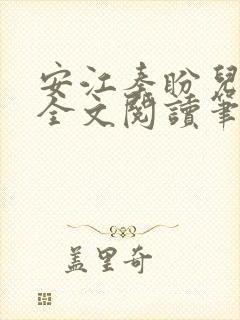 安江秦盼兒
全文閱讀筆
盖里奇